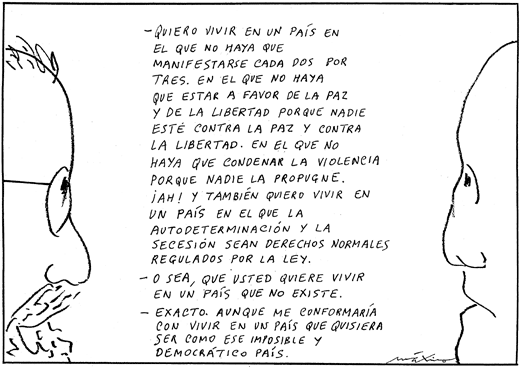 - QUIERO VIVIR EN UN PAÍS EN
EL QUE NO HAYA QUE
MANIFESTARSE CADA DOS POR
TRES. EN EL QUE NO HAYA
QUE ESTAR A FAVOR DE LA PAZ
Y DE LA LIBERTAD PORQUE NADIE
ESTÉ CONTRA LA PAZ Y CONTRA
LA LIBERTAD. EN EL QUE NO
HAYA QUE CONDENAR LA VIOLENCIA
PORQUE NADIE LA PROPUGNE.
¡AH! Y TAMBIÉN QUIERO VIVIR EN
UN PAÍS EN EL QUE LA
AUTODETERMINACIÓN Y LA
SECESIÓN SEAN DERECHOS NORMALES
REGULADOS POR LA LEY.
- O SEA, QUE USTED QUIERE VIVIR
EN UN PAÍS QUE NO EXISTE.
- EXACTO. AUNQUE ME CONFORMARÍA
CON VIVIR EN UN PAÍS QUE QUISIERA
SER COMO ESE IMPOSIBLE Y
DEMOCRÁTICO PAÍS.
máximo